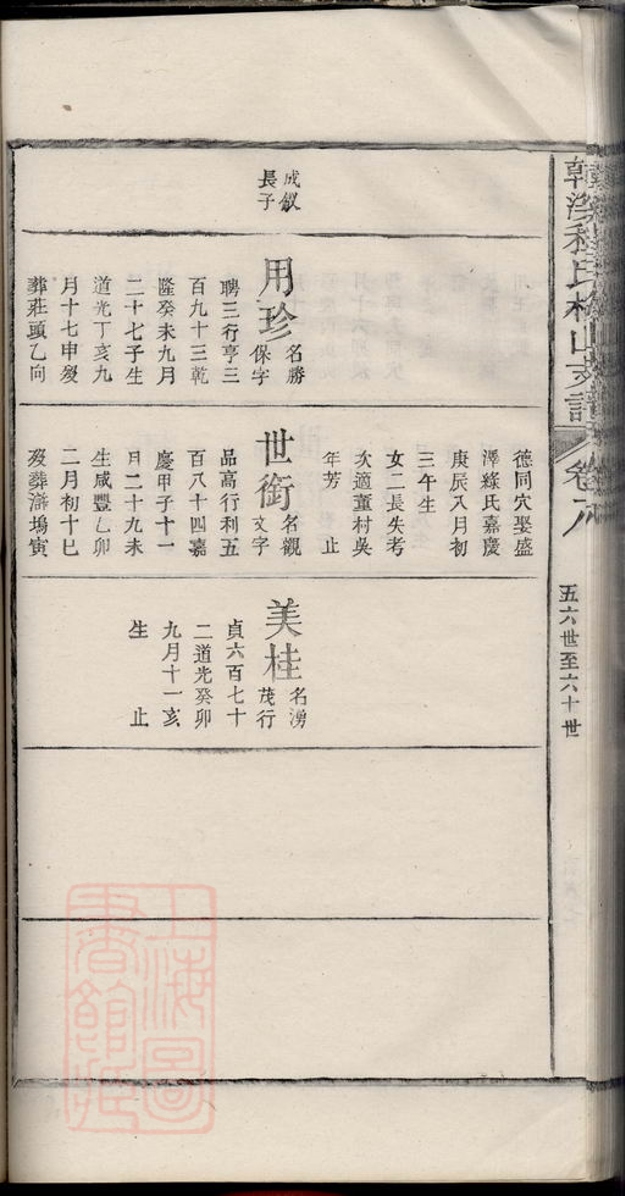 韓溪程氏梅山支譜
卷六
五六世至六十世
成釵
長子
用珍
名勝
保字
聘三行亨三
百九十三乾
隆癸未九月
二十七子生
道光丁亥九
月十七申歿
葬莊頭乙向
德同穴娶盛
澤緣氏嘉慶
庚辰八月初
三午生
女二長失考
次適董村吳
年芳 止
世銜
名觀
文字
品高行利五
百八十四嘉
慶甲子十一
日二十九未
生咸豐乙卯
二月初十巳
歿葬滸塢寅
美桂
名湧
茂行
貞六百七十
二道光癸卯
九月十一亥
生 止
上海圖
書館藏